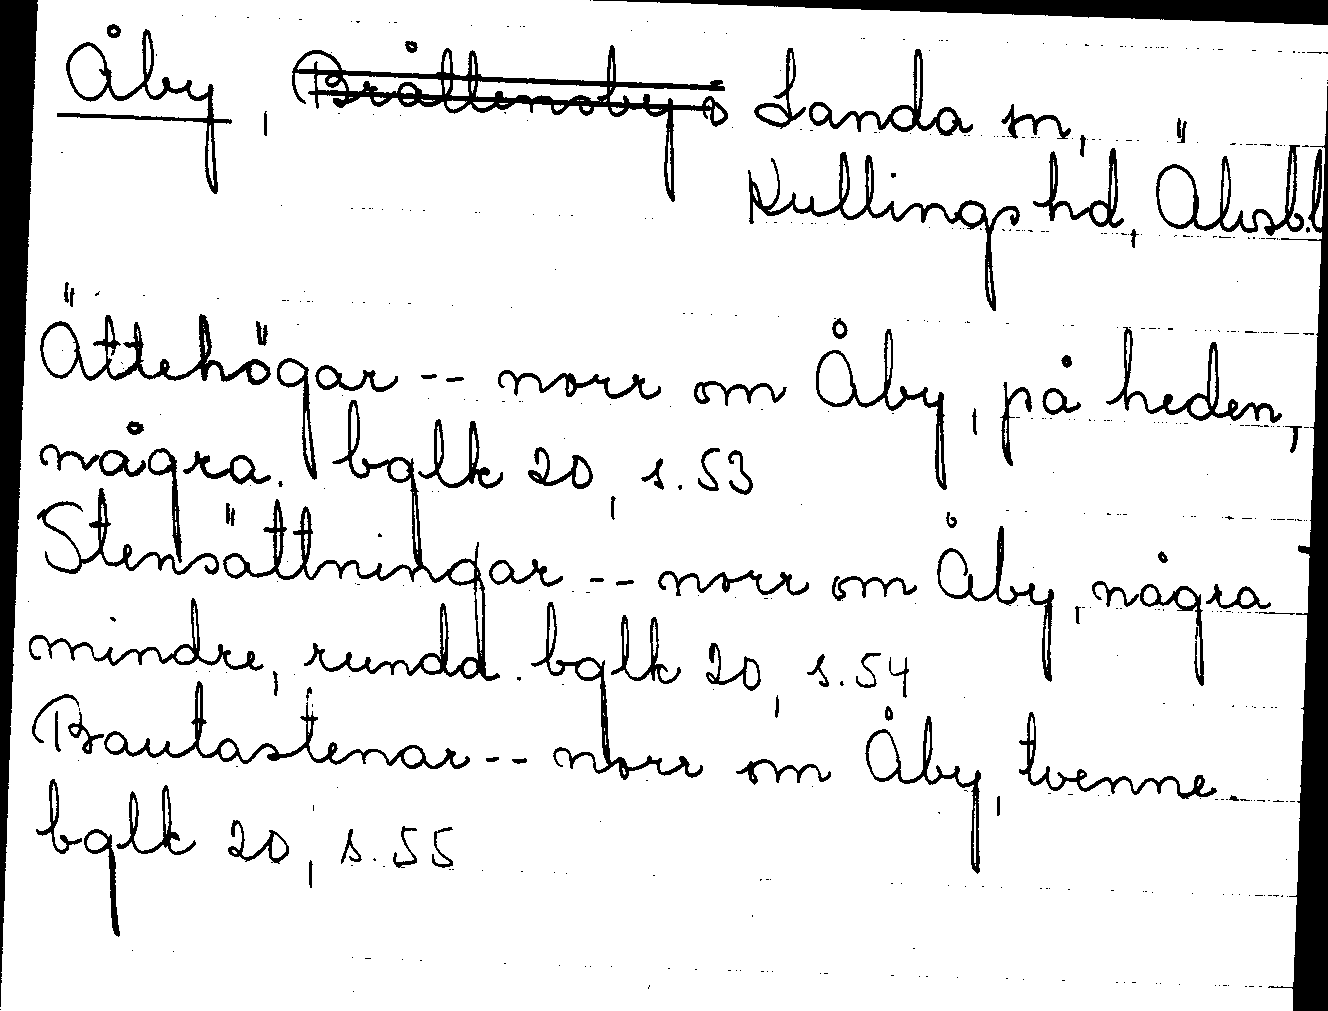 Åby, Landa sn,
Kullings hd, Älvsb.l
Ättehögar -- norr om Åby, på heden,
några. bglk 20, s.53
Stensättningar -- norr om Åby, några
mindre, rundd. bglk 20, s.54
Bautastenar -- norr om Åby, tvenne.
bglk 20, s.55